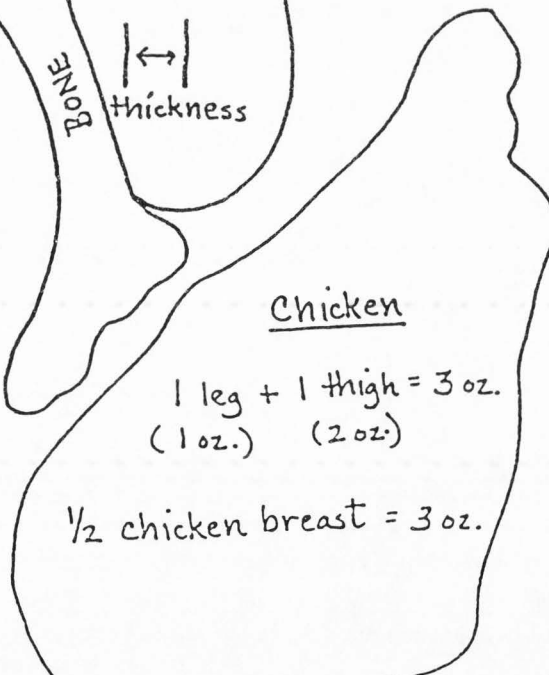 BONE
thickness
Chicken
1 leg + 1 thigh = 3 oz.
(1 oz.) (2 oz.)
1/2 chicken breast = 3 oz.